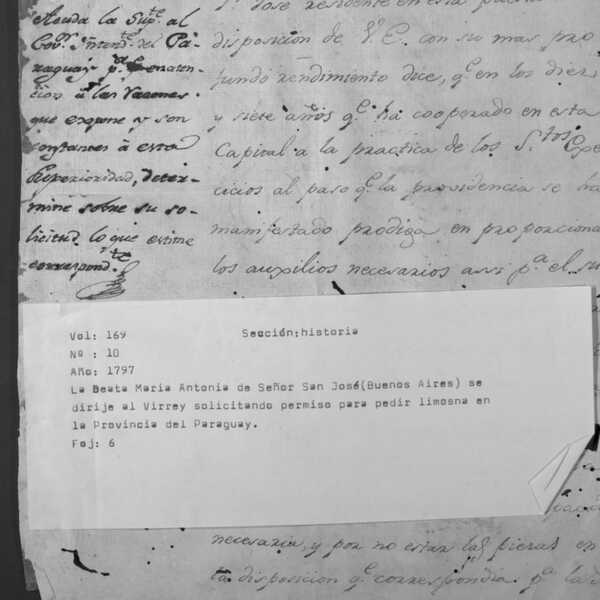 Acuda la Sup.te al
Gov.or Intend.te del Pa-
raguay p.a q.e en aten-
cion à las razones
que expone y son
constantes à esta
Superioridad, deter-
mine sobre su so-
licitud lo que estime
correspond.te
S.n José residente en esta
disposicion de V.E. con su mas pro
fundo rendimiento dice, q.e en los diez
y siete años q.e ha cooperado en esta
Capital a la practica de los S.tos Exer
cicios al paso q.e la providencia se ha
manifestado prodiga en proporciona
los auxilios necesarios assi p.a el su
Vol: 169
Sección:historia
Nº : 10
Año: 1797
La Beata Maria Antonia de Señor San José(Buenos Aires) se
dirije al Virrey solicitando permiso para pedir limosna en
la Provincia del Paraguay.
Foj: 6
necesaria, y por no estar las piezas en
la disposicion q.e correspondia p.a la